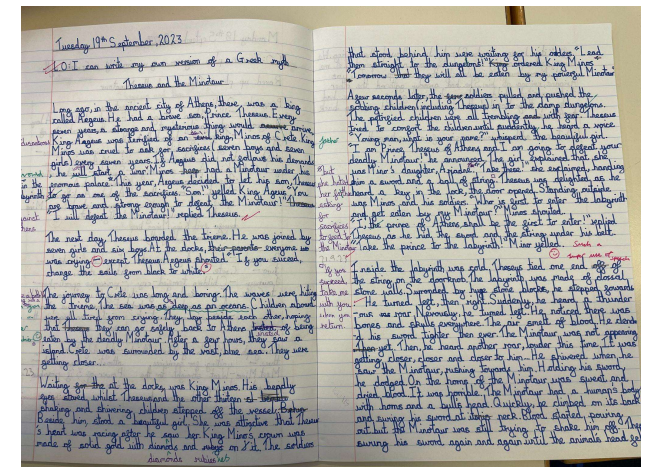 Tuesday 19th September, 2023
LO: I can write my own version of a Greek myth
Theseus and the Minotaur
Long ago, in the ancient city of Athens, there was a king
called Aegeus. He had a brave son, Prince Theseus. Every
seven years, a strange and mysterious thing would arrive
King Aegeus was terrified of an King Minos of Crete. King
Minos was cruel to ask for sacrifices (seven boys and seven
girls) every seven years. If Aegeus did not follow his demands
he will start a war. Minos kept had a Minotaur under his
enormous palace. This year, Aegeus decided to let his son, Theseus
to go as one of the sacrifices. "Son!" yelled King Aegeus "You
are brave and strong enough to defeat the Minotaur!"
I will defeat the Minotaur!" replied Theseus.
The next day, Theseus boarded the trireme. He was joined by
seven girls and six boys. At the docks, everyone
was crying except Theseus. Aegeus shouted "If you suceed,
change the sails from black to white"
The journey to Crete was long and boring. The waves were hitting
the trireme. The sea was as deep as an ocean. Children aboard
were all tired from crying. They lay beside each other, hoping
that they can go safely back to Athens instead of being
eaten by the deadly Minotaur. After a few hours, they saw a
island. Crete was surrounded by the vast, blue sea. They were
getting closer...
Waiting for at the docks, was King Minos. His beady
eyes stared whilst Theseus and the other thirteen
shaking and shivering children stepped off the vessel.
Beside him stood a beautiful girl. She was attractive that Theseus
's heart was racing after he saw her. King Minos's crown was
made of solid gold with diamonds and rubies on it. The soldiers
diamonds rubies
that stood behind him were waiting for his orders. "Lead
them straight to the dungeons!" ordered King Minos
"Tomorrow they will all be eaten by my powerful Minotaur"
A few seconds later, the soldiers pulled and pushed the
children including Theseus in to the damp dungeons.
The petrified children were all trembling and with fear. Theseus
tried to comfort the children until suddenly, he heard a voice
"Young man, what is your name?" whispered the beautiful girl.
"I am Prince Theseus of Athens and I am going to defeat your
deadly Minotaur!" he announced. The girl explained that she
was Minos's daughter, Ariadne. "Take these" she explained, handing
him a sword and a ball of string. Theseus was delighted. As he
heard a key in the lock, the door opened. Standing outside
was Minos and his soldiers. "Who is first to enter the labyrinth
and get eaten by my Minotaur?" Minos shouted.
"I, the prince of Athens shall be the first to enter!" replied
Theseus as he hid the sword and the string under his belt.
"Take the prince to the labyrinth!" Minos yelled.
Inside the labyrinth was cold. Theseus tied one end of
the string on the doorhandle. The labyrinth was made of closed,
stone walls. Surrounded by huge stone blocks, he stepped forwards
He turned left, then right. Suddenly, he heard a thunder
-ous roar. Nervously, he turned left. He noticed there was
bones and skulls everywhere. The air smelt of blood. He clench
-ed his sword tighter then ever. The Minotaur was not appearing
yet. Then, he heard another roar, louder this time. It was
getting closer, closer and closer to him. He shivered when he
saw the Minotaur, rushing towards him. Holding his sword,
he dodged. On the horns of the Minotaur was sweat and
dried blood. It was horrible. The Minotaur had a human's body
with horns and a bull's head. Quickly, he climbed on its back
and swung his sword at its neck. Blood started, pouring
out but the Minotaur was still trying to shake him off. They
swung his sword again and again until the animals head